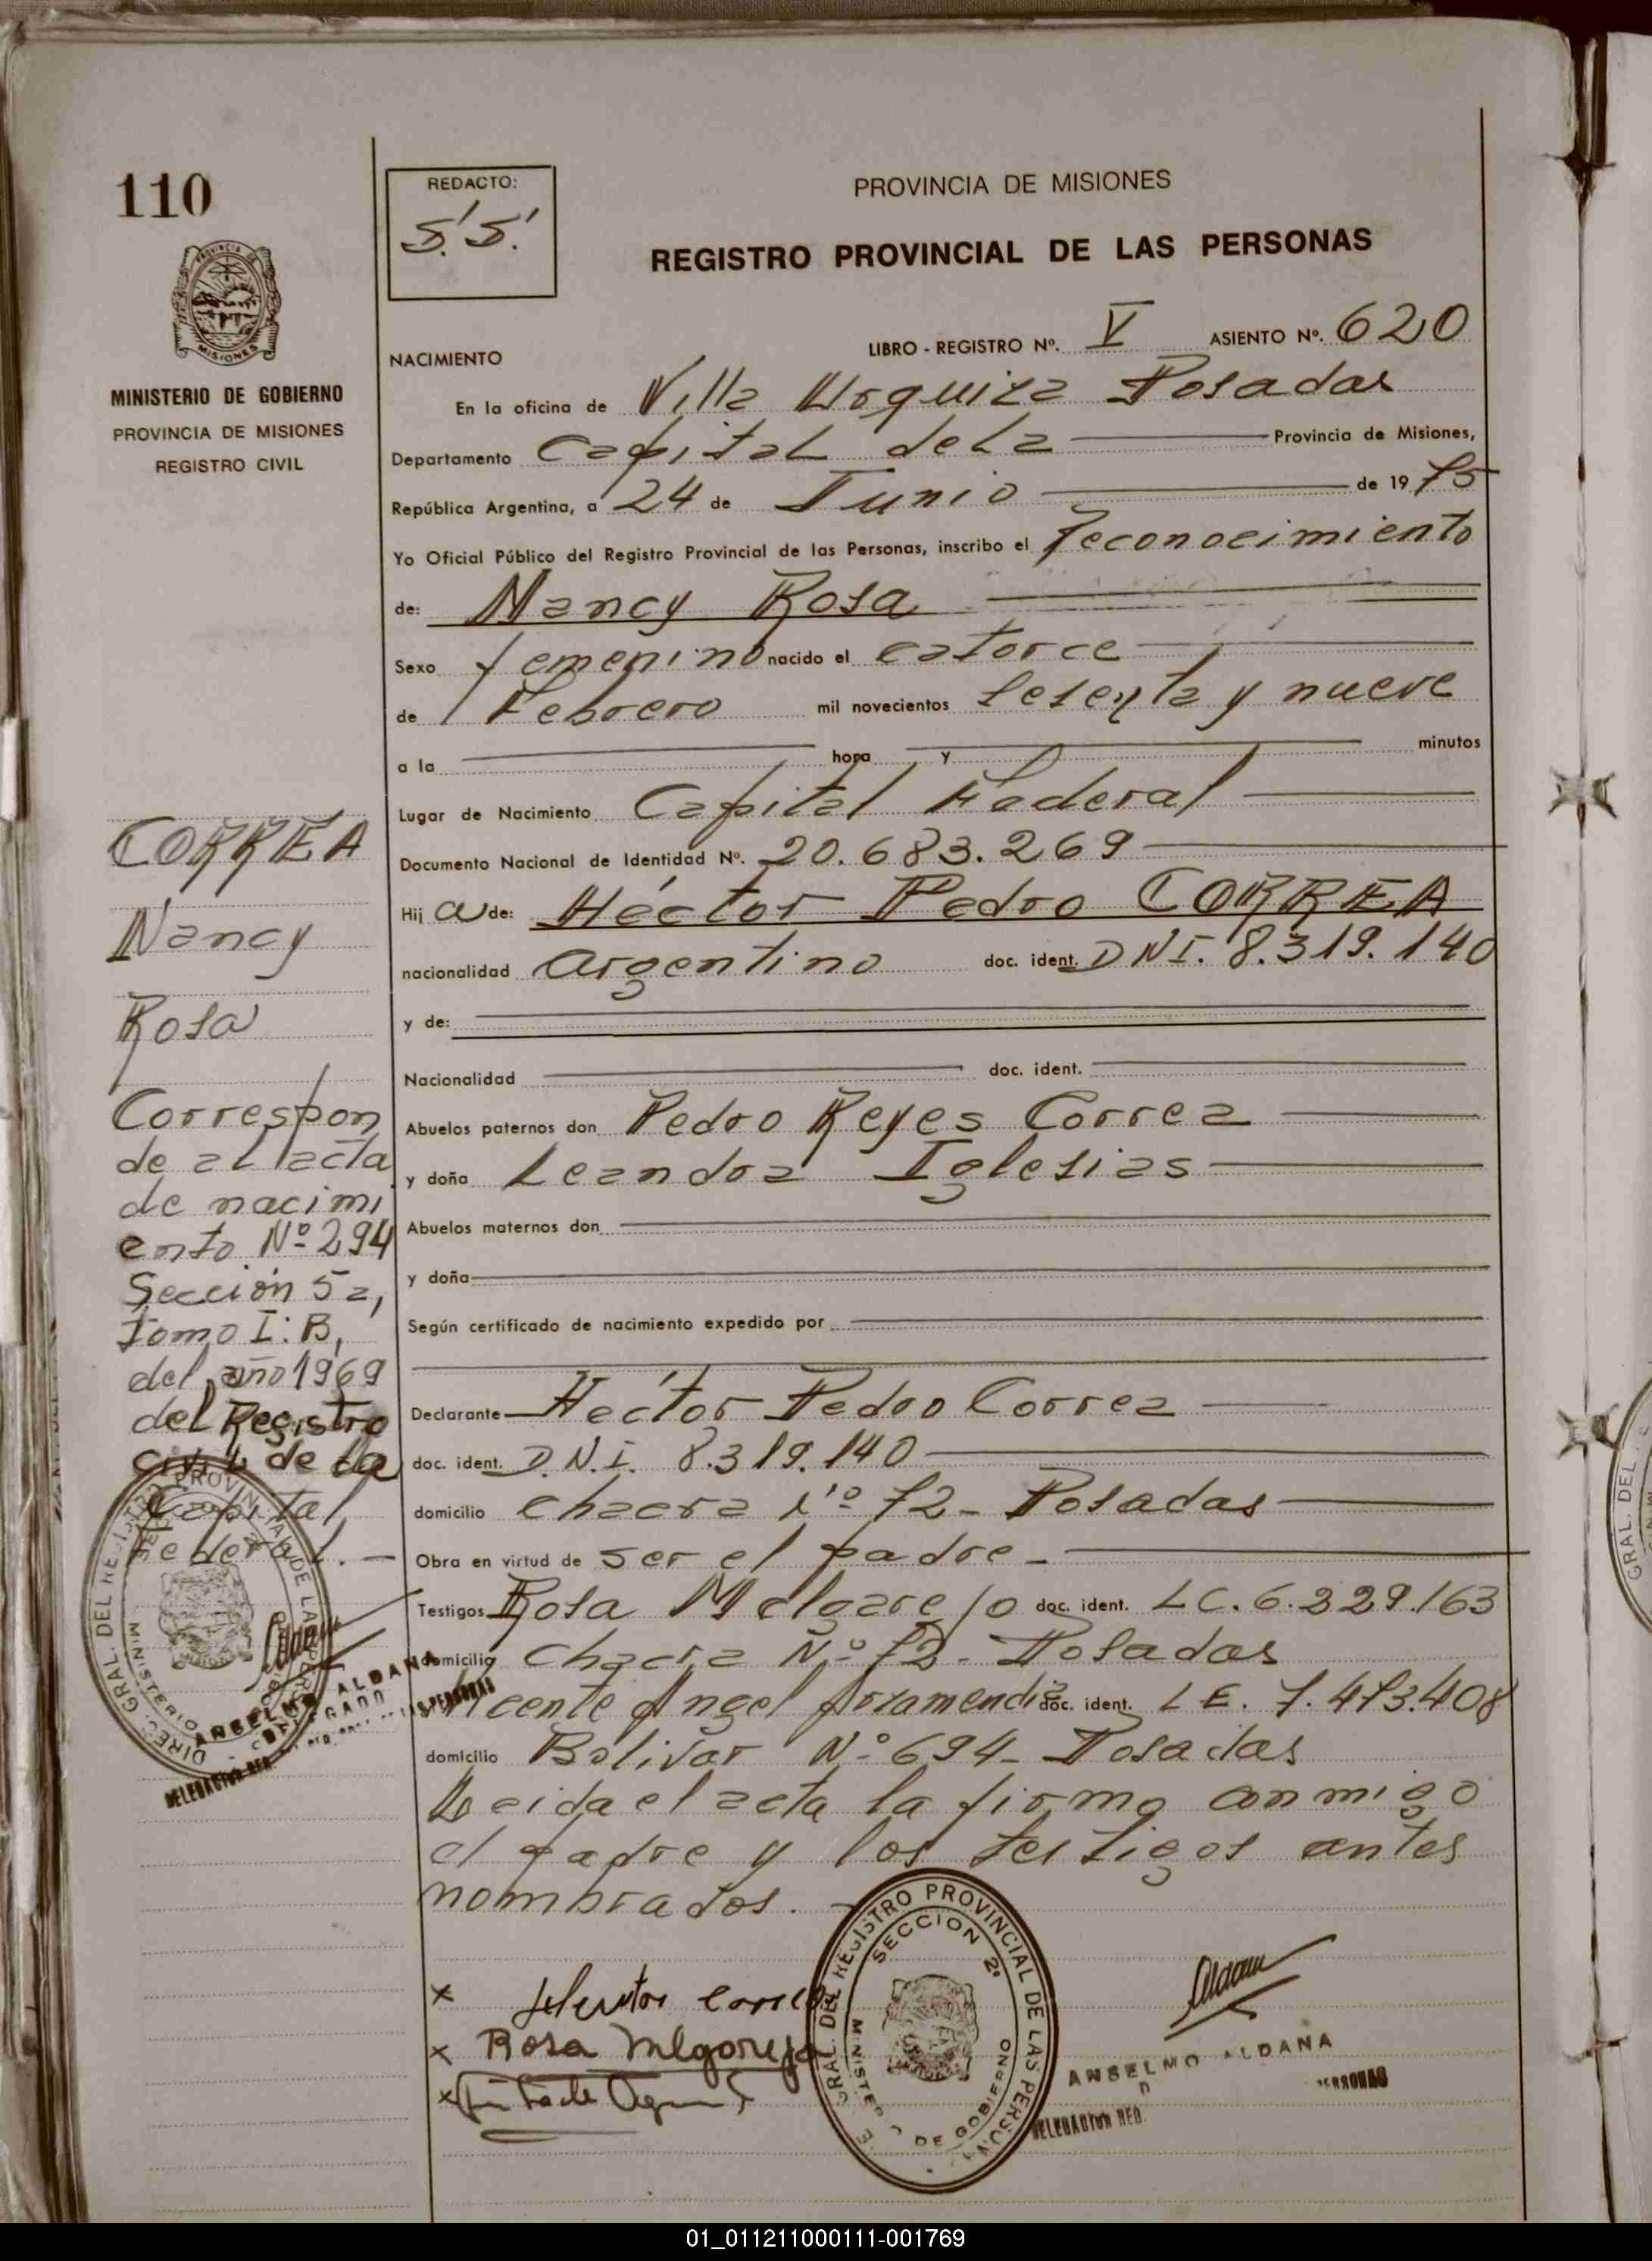 110
REDACTO:
S. S.
PROVINCIA DE MISIONES
REGISTRO PROVINCIAL DE LAS PERSONAS
PROVINCIA
MISIONES
MINISTERIO DE GOBIERNO
PROVINCIA DE MISIONES
REGISTRO CIVIL
LIBRO - REGISTRO Nº. V ASIENTO Nº. 620
NACIMIENTO
En la oficina de Villa Urquiza Posadas
Departamento Capital de La Provincia de Misiones,
República Argentina, a 24 de Junio de 1975
Yo Oficial Público del Registro Provincial de las Personas, inscribo el reconocimiento
de: Nancy Rosa
Sexo femenino nacido el catorce
de Febrero mil novecientos sesenta y nueve
a la hora y minutos
Lugar de Nacimiento Capital Federal
Documento Nacional de Identidad Nº. 20.683.269
Hij a de: Héctor Pedro CORREA
nacionalidad argentino doc. ident. DNI. 8.319.140
y de:
Nacionalidad doc. ident.
Abuelos paternos don Pedro Reyes Correa
y doña Leandra Iglesias
Abuelos maternos don
y doña
Según certificado de nacimiento expedido por
Declarante Héctor Pedro Correa
doc. ident. D.N.I. 8.319.140
domicilio chacra Nº 72 - Posadas
Obra en virtud de ser el padre -
Testigos Rosa Melgarejo doc. ident. LC. 6.229.163
domicilio chacra Nº 72 - Posadas
Vicente Angel doc. ident. LE. 7.473.408
domicilio Bolívar Nº 694 - Posadas
Leida el acta la firma conmigo
el padre y los testigos antes
nombrados. -
CORREA
Nancy
Rosa
Correspon
de al acta
de nacimi
ento Nº 294
Sección 5a,
Tomo I: B,
del año 1969
del Registro
civil de la
Capital
Federal. -
DIREC. GRAL. DEL REGISTRO PROVINCIAL DE LAS PERSONAS
MINISTERIO DE GOBIERNO
Aldana
ANSELMO ALDANA
DELEGADO
DELEGACION REG. PERSONAS
x Héctor Correa
x Rosa Melgarejo
x
GRAL. DEL REGISTRO PROVINCIAL DE LAS PERSON
SECCION 2º
MINISTERIO DE GOBIERNO
Aldana
ANSELMO ALDANA
DELEGACION REG. PERSONAS
GRAL. DEL
01_011211000111-001769